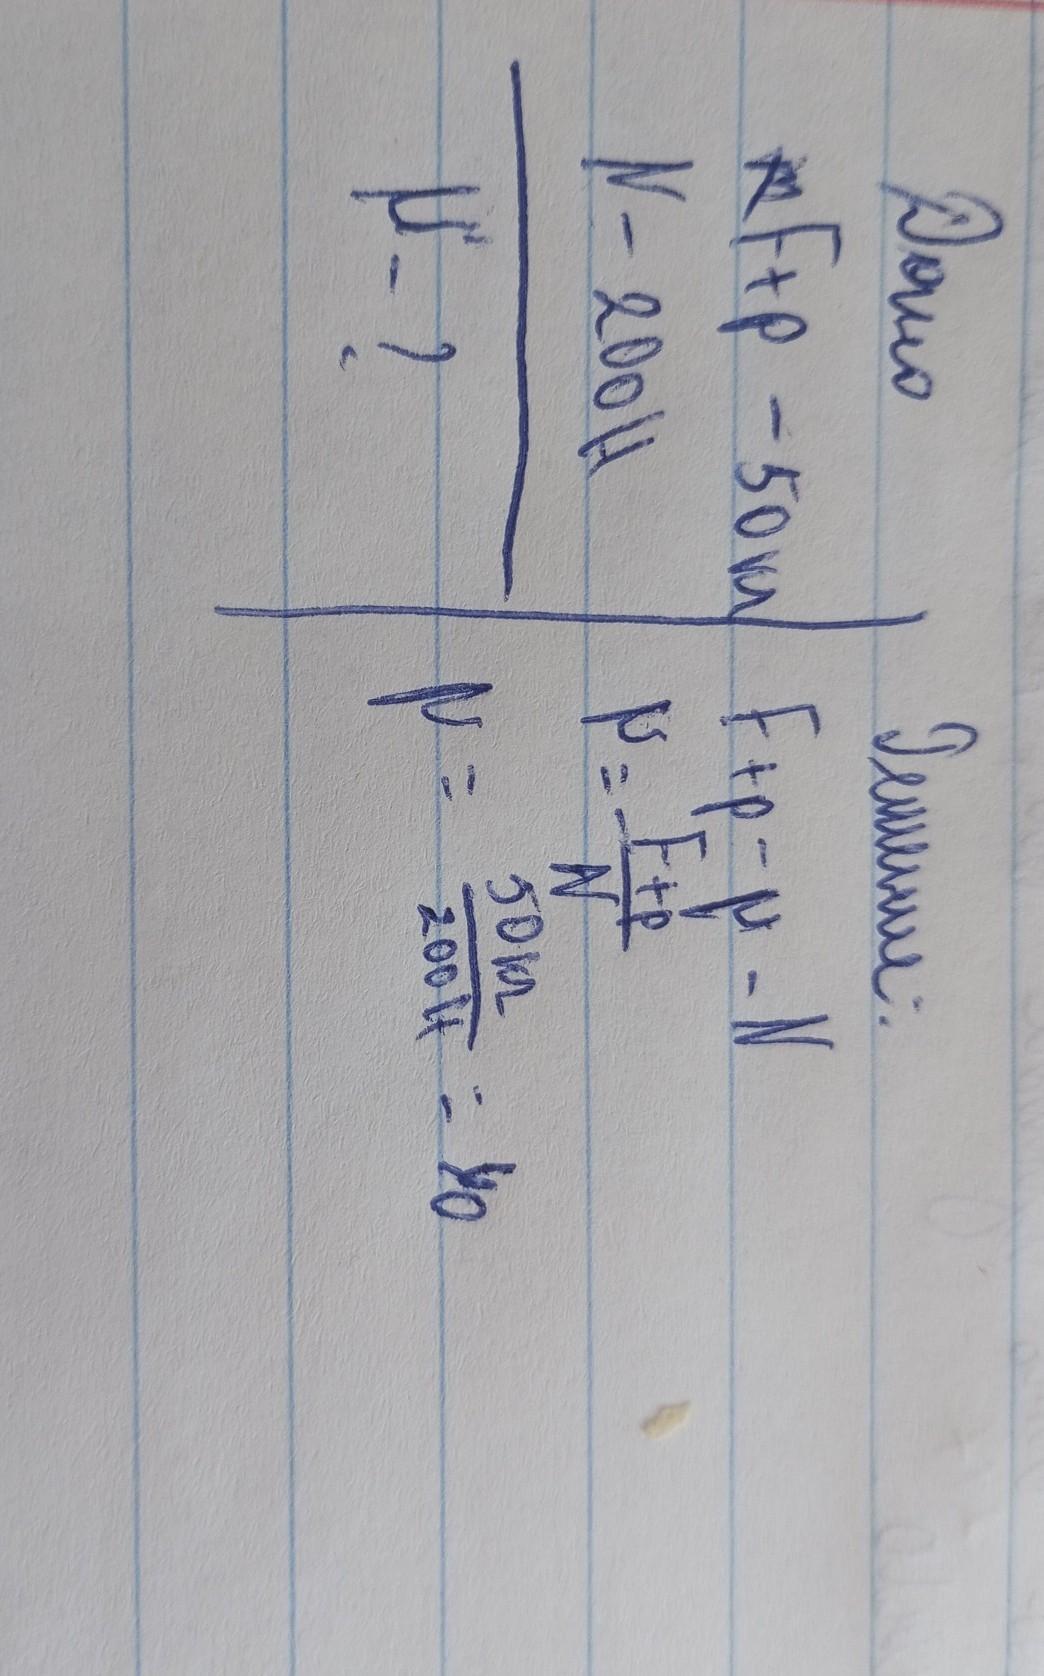 Дано
Fтр - 50кг
N - 200Н
μ - ?
Решение:
Fтр - μ - N
μ = Fтр / N
μ = 50кг / 200Н = 40